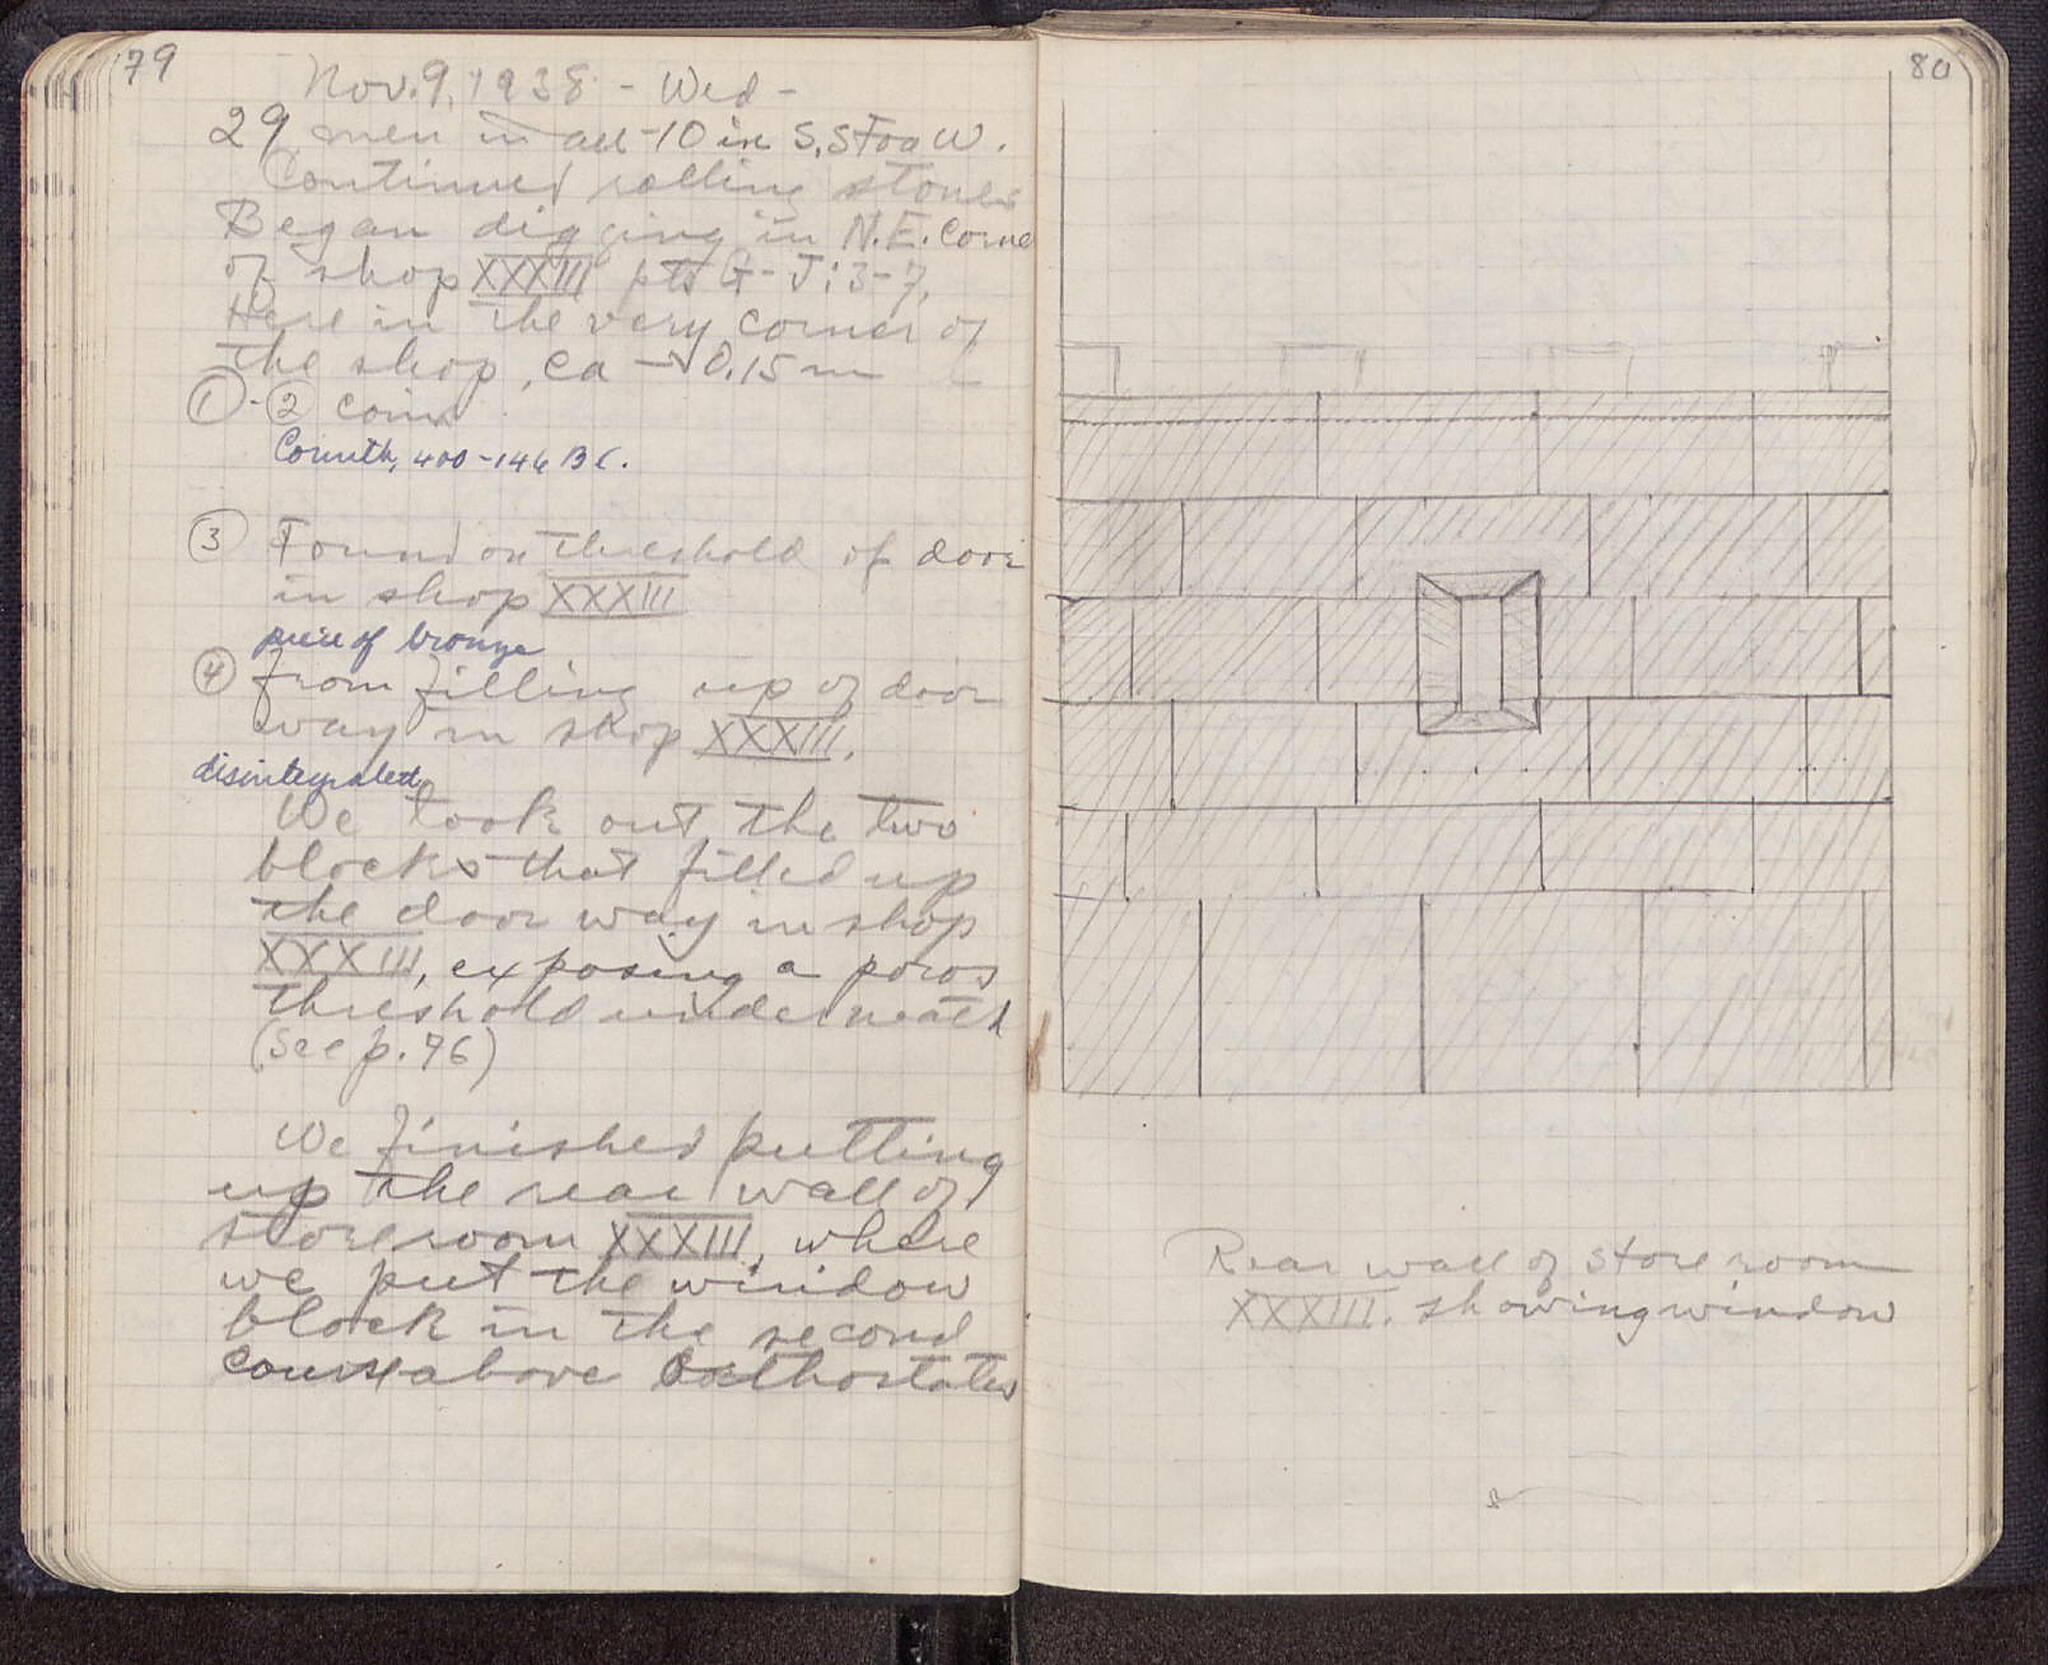 79
Nov. 9, 1938 - Wed -
29 men in all - 10 in S. Stoa W.
Continued rolling stones
Began digging in N.E. Corne
of shop XXXIII pts G - J : 3-7.
Here in the very corner of
the shop, ca → 0.15 m
① - ② coins
Corinth, 400-146 BC.
③ Found on threshold of door
in shop XXXIII
piece of bronze
④ from filling up of door
way in shop XXXIII.
disintegrated
We took out the two
blocks that filled up
the door way in shop
XXXIII, exposing a poros
threshold underneath
(See p. 76)
We finished putting
up the rear wall of
storeroom XXXIII, where
we put the window
block in the second
course above Orthostates
80
Rear wall of store room
XXXIII. showing window